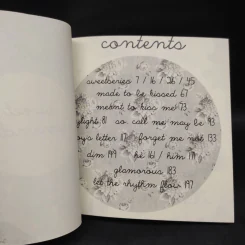 contents
sweetseries 7 / 16 / 36 / 45
made to be kissed 67
meant to kiss me 73
light 81 so call me may be 93
boys letter 117 forget me not 133
dim 149 he 161 / him 171
glamorous 183
let the rhythm flow 197